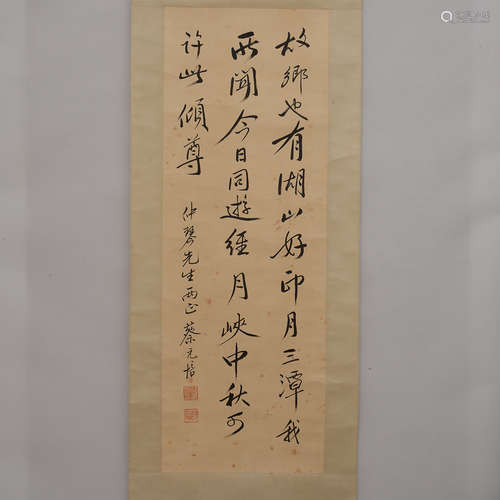 故鄉也有湖山好印月三潭我
所聞今日同遊經月峽中秋可
許此傾尊
仲琴先生兩正 蔡元培